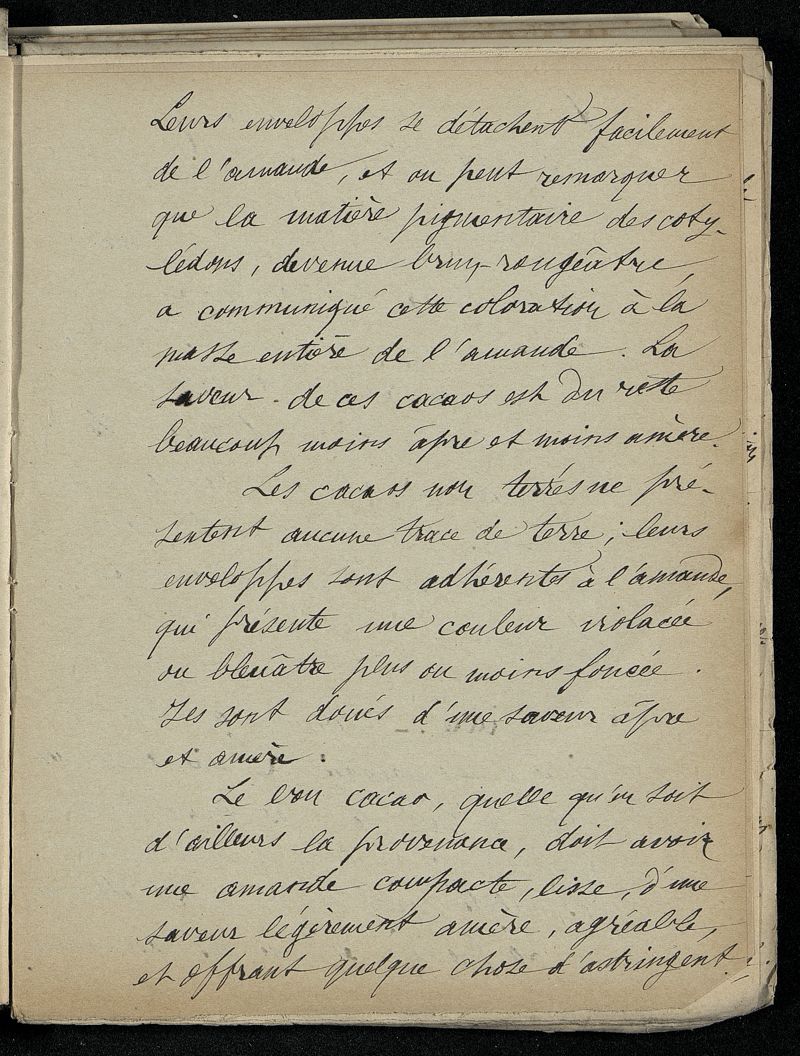 Leurs enveloppes se détachent facilement
de l'amande, et on peut remarquer
que la matière pigmentaire des coty-
lédons, devenue brun-rougeâtre,
a communiqué cette coloration à la
masse entière de l'amande. La
saveur de ces cacaos est du reste
beaucoup moins âpre et moins amère.
Les cacaos non terrés ne pré-
sentent aucune trace de terre; leurs
enveloppes sont adhérentes à l'amande,
qui présente une couleur violacée
ou bleuâtre plus ou moins foncée.
Ils sont doués d'une saveur âpre
et amère.
Le bon cacao, quelle qu'en soit
d'ailleurs la provenance, doit avoir
une amande compacte, lisse, d'une
saveur légèrement amère, agréable,
et offrant quelque chose d'astringent.